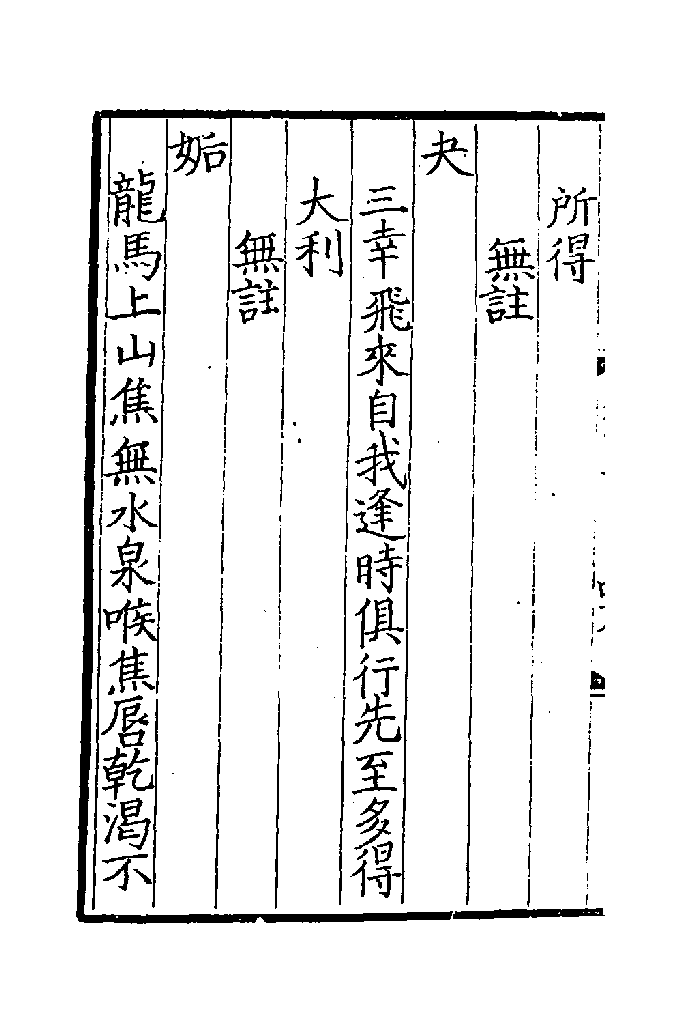 所得
無註
夬
三幸飛來自我逢時俱行先至多得
大利
無註
姤
龍馬上山焦無水泉喉焦唇乾渴不